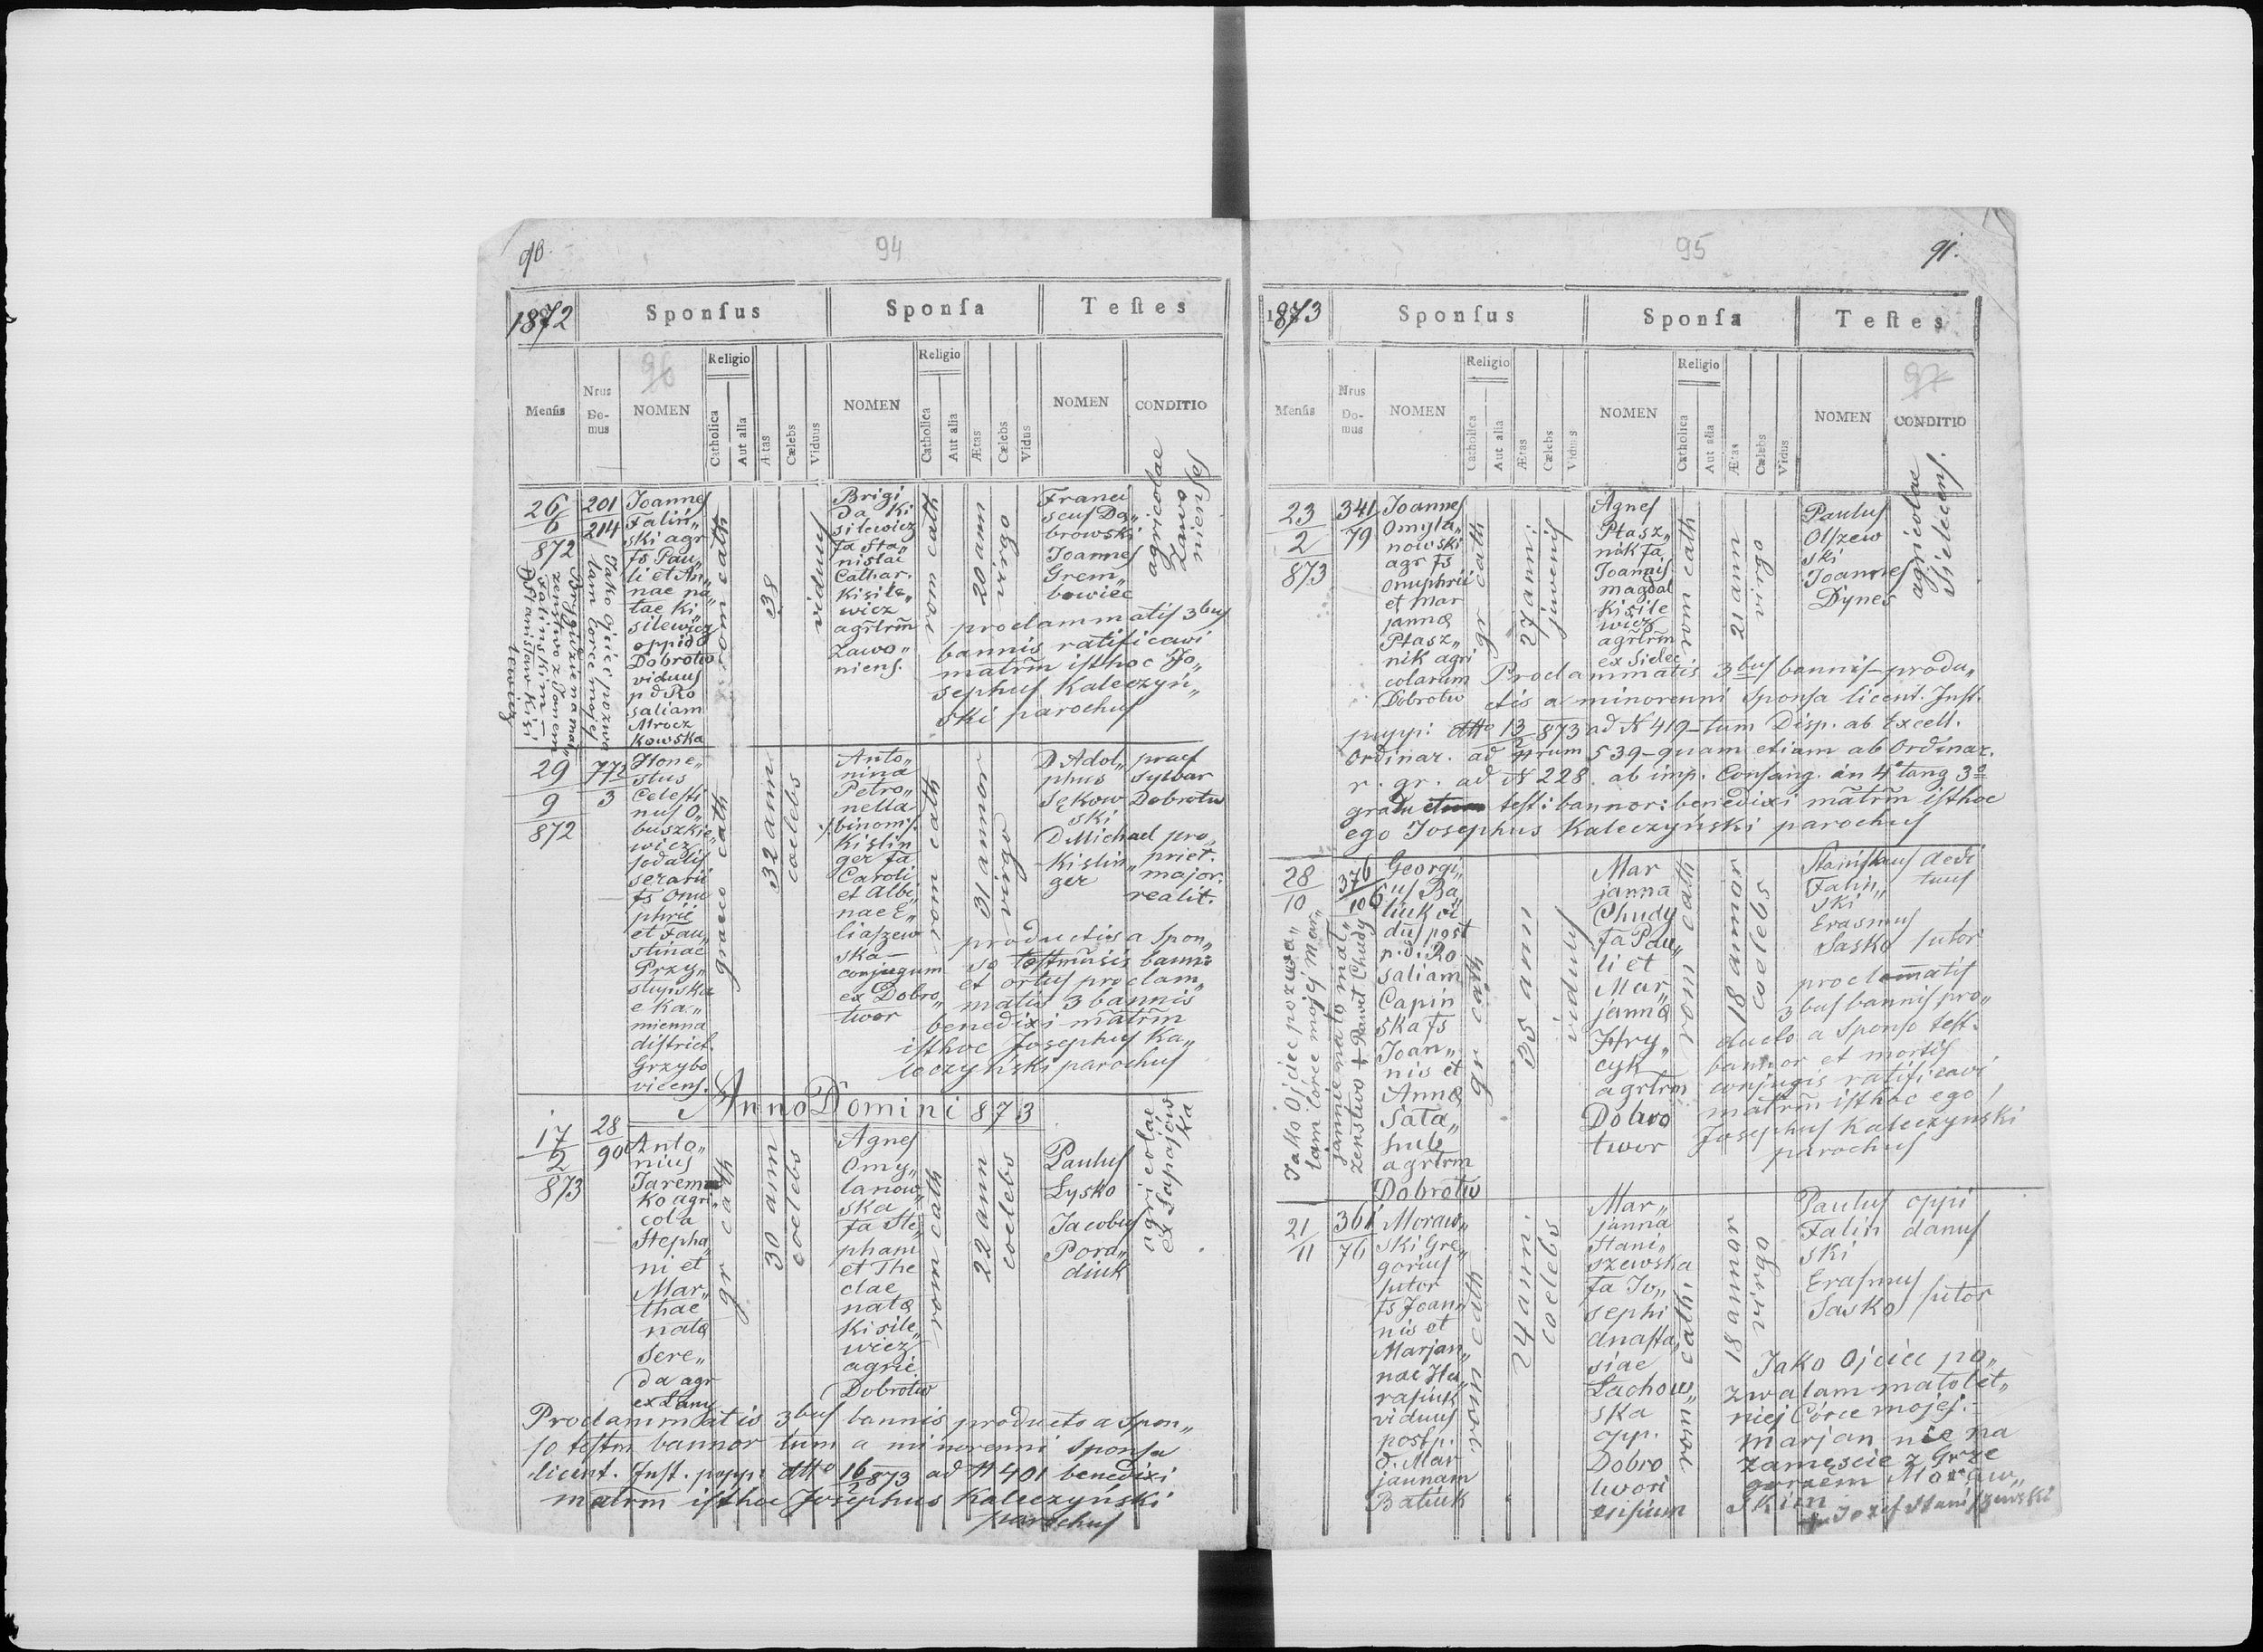 90.
94
1872
Sponſus
Sponſa
Teſtes
Menſis
Nrus Domus
96
NOMEN
Religio
Catholica
Aut alia
Ætas
Cælebs
Viduus
NOMEN
Religio
Catholica
Aut alia
Ætas
Cælebs
Vidus
NOMEN
CONDITIO
26
6
872
201
214
Joannes
Faliń„
ski agr
fs Pau„
li et An„
nae na„
tae Ki„
silewicz
oppido
Dobrotw
viduus
p d Ro
saliam
Mrocz
kowska
Jako Ojciec pozwa
lam Corce mojej
Brygidzie na mał„
zenstwo z Janem
Falinskim –
Stanisław Kisi
lewicz
rom cath
38
viduus
Brigi
da Ki
silewicz
fa Sta„
nislai
Cathar.
Kisile„
wicz
agrlrm
Zawo„
niens.
rom cath
20 ann
virgo
Franci
scus Dą„
browski
Joannes
Grem„
bowiec
agricolae
Zawo
nienses
proclammatis 3bus
bannis ratificavi
matrm isthoc Jo„
sephus Kaleczyń„
ski parochus
29
9
872
772
3
Hone„
stus
Celesti
nus O„
buszkie„
wicz
sodalis
serarii
fs Onu
phrii
et Fau„
stinae
Przy„
stupska
e Ka„
mienna
district.
Grzybo
vicens.
graeco cath
32 ann
coelebs
Anto„
nina
Petro„
nella
/:binom:/
Kislin
ger fa
Caroli
et Albi
nae E„
liaszew
ska –
conjugum
ex Dobro„
twor
rom cath
31 annor
virgo
D Adol„
phus
Sękow
ski
D Michael
Kislin„
ger
praef
sylvar
Dobrotw
pro„
priet.
major.
realit.
productis a spon„
so testmūsis bann:
et ortus proclam„
matis 3 bannis
benedixi matrm
isthoc Josephus Ka„
leczyński parochus
Anno Domini 873
17
2
873
28
90
Anto„
nius
Jarem
ko agri„
cola
Stepha„
ni et
Mar„
thae
nata
Sere„
da agr
ex Łany
gr cath
30 ann
coelebs
Agnes
Omy„
lanow„
ska
fa Ste„
phani
et The
clae
nata
Kisile„
wicz
agric
Dobrotw
rom cath
22 ann
coelebs
Paulus
Lysko
Jacobus
Pora„
diuk
agricolae
ex Sapajow
ka
Proclammatis 3bus bannis producto a spon„
so testm bannor tum a minorenni sponsa
licent. Inst. pupp: dtto 16/2 873 ad N 401 benedixi
matrm isthoc Josephus Kaleczyński
parochus
95
91.
1873
Sponſus
Sponſa
Teſtes
Menſis
Nrus Domus
NOMEN
Religio
Catholica
Aut alia
Ætas
Cælebs
Vidus
NOMEN
Religio
Catholica
Aut alia
Ætas
Cælebs
Vidus
NOMEN
97
CONDITIO
23
2
873
341
79
Joannes
Omyla„
nowski
agr fs
Onuphrii
et Mar
janna
Ptasz„
nik agri
colarum
Dobrotw
gr cath
27 ann:
juvenis
Agnes
Ptasz„
nik fa
Joannis
Magdal
Kisile
wicz
agrlrm
ex Sielec
rom cath
21 ann
virgo
Paulus
Olszew
ski
Joannes
Dynes
agricolae
Sielecens.
Proclammatis 3bus bannis – produ„
ctis a minorenni sponsa licent. Inst.
pupp: dtto 13/2 873 ad N 419 – tum Disp. ab Excell.
Ordinar. ad nrum 539 – quam etiam ab Ordinar.
r. gr. ad N 228 ab imp. Consang. in 4° tang 3°
gradu test: bannor: benedixi matrm isthoc
ego Josephus Kaleczyński parochus
28
10
376
106
Georgi„
us Ba„
liuk vi
dus post
p. d. Ro
saliam
Capin
ska fs
Joan„
nis et
Anna
Sata„
hub
agrlrm
Dobrotw
Jako Ojciec pozwa„
lam Corce mojej Mar„
jannie na to mał„
zenstwo + Paweł Chudy
gr cath
35 ann
viduus
Mar
janna
Chudy
fa Pau„
li et
Mar„
janna
Hry„
cyk
agrlrm
Dobro
twor
rom cath
18 annor
coelebs
Stanislaus
Falin„
ski
Erasmus
Sasko
dedi
tuus
sutor
proclammatis
3 bus bannis pro„
ducto a Sponso test.
bannor et mortis
conjugis ratificavi
matrm isthoc ego
Josephus Kaleczyński
parochus
21
11
361
76
Moraw„
ski Gre„
gorius
sutor
fs Joan„
nis et
Marjan„
nae Ha„
rasiuk
viduus
post p.
d. Mar
jannam
Batiuk
rom cath
24 ann.
coelebs
Mar„
janna
Stani„
szewska
fa Jo„
sephi
Anasta„
siae
Lachow„
ska
opp.
Dobro
twori
ensium
rom cath
18 annor
virgo
Paulus
Falin
ski
Erasmus
Sasko
oppi
danus
sutor
Jako Ojciec po„
zwalam małolet„
niej Córce mojej:–
Marjannie na
zamęscie z Grze
gorzem Moraw„
skim
+ Jozef Staniszewski